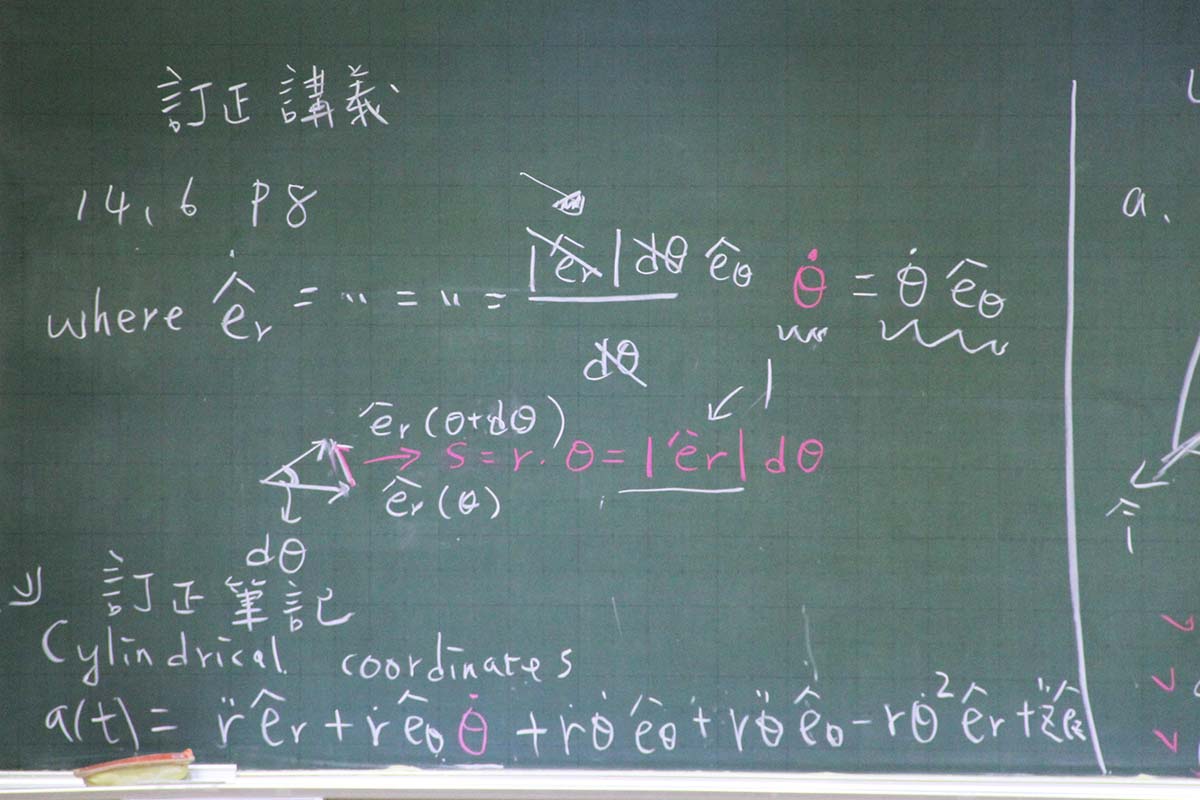 訂正講義
14,6 P8
where ė̂r = " = " = |êr|dθ êθ / dθ θ̇ = θ̇ êθ
1
êr(θ+dθ)
S = r.θ = |êr|dθ
êr(θ)
dθ
訂正筆記
Cylindrical coordinates
a(t) = r̈êr + ṙêθθ̇ + ṙθ̇êθ + rθ̈êθ - rθ̇²êr + z̈êz
a.
î